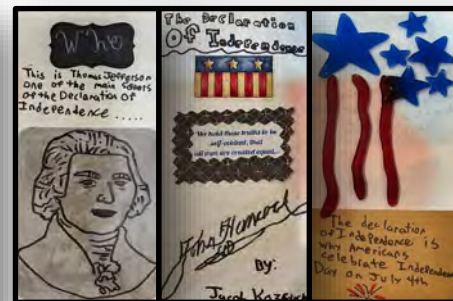 Who
This is Thomas Jefferson
one of the main signers
of the Declaration Of
Independence .....
The Declaration
Of Independence
We hold these truths to be
self-evident, that
all men are created equal...
John Hancock
By:
Jacob
The declaration
of Independence is
why Americans
celebrate Independence
Day on July 4th